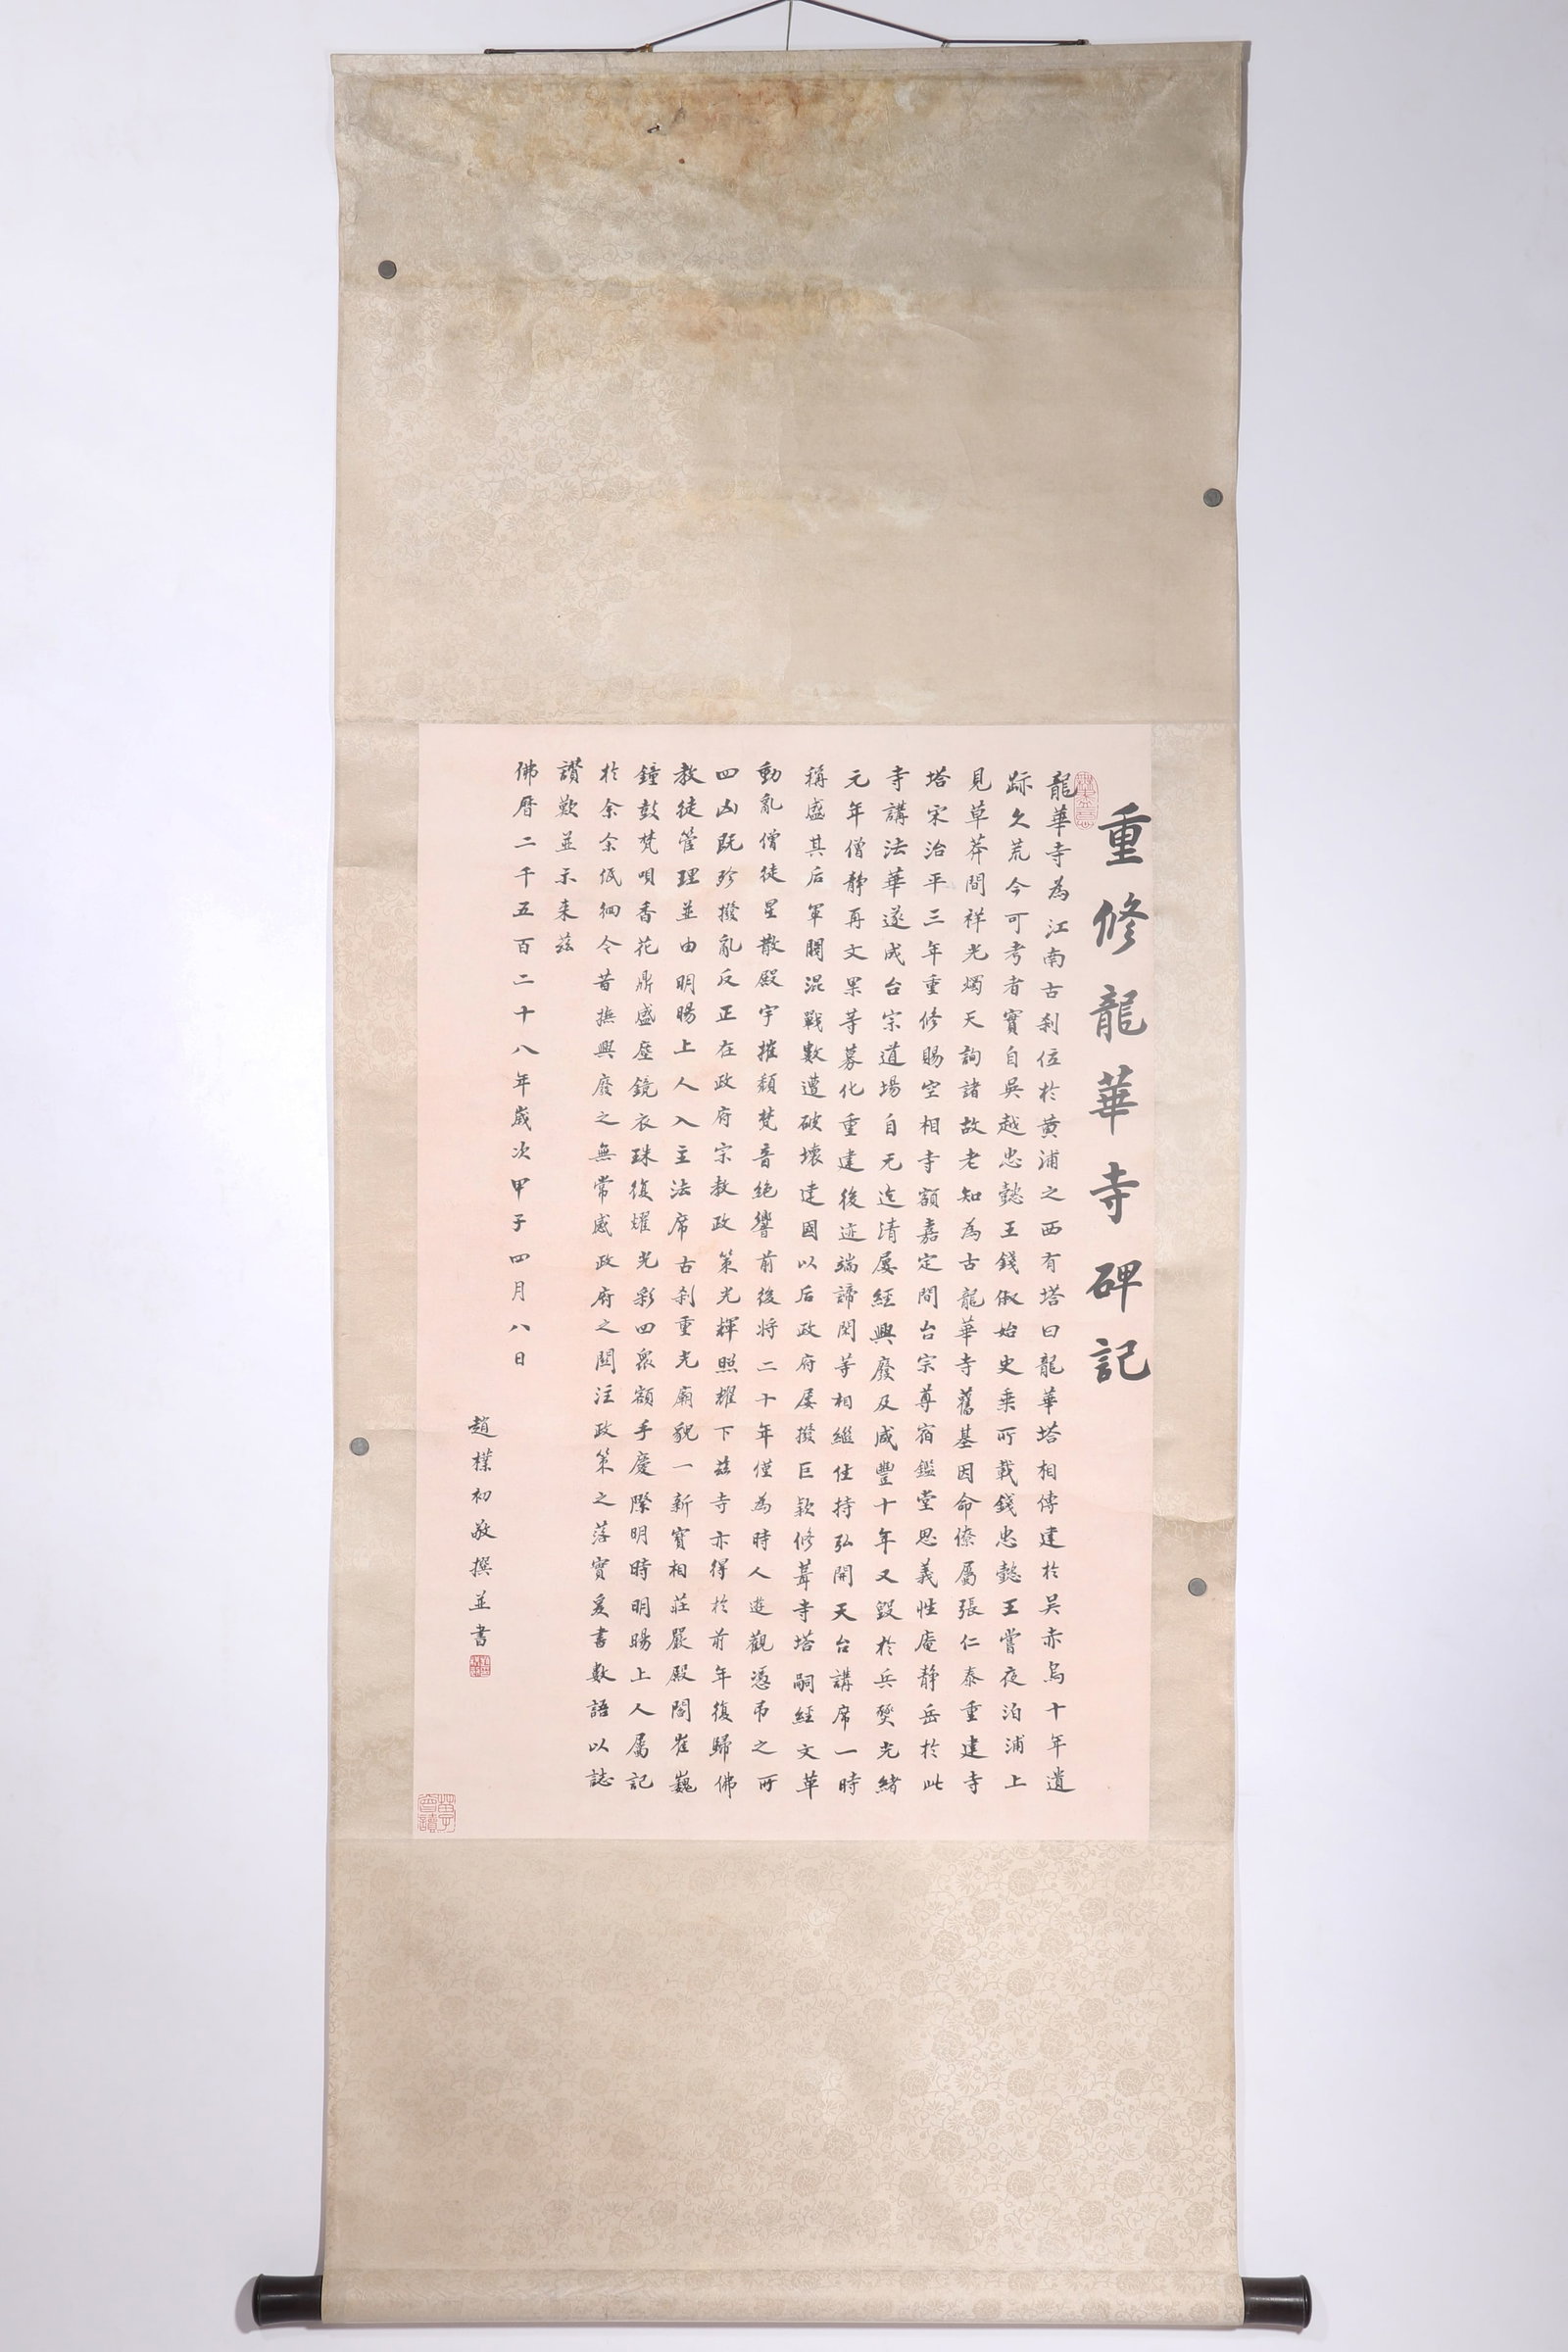 重修龍華寺碑記
龍華寺為江南古刹位於黄浦之西有塔曰龍華塔相傳建於吴赤烏十年遺
跡久荒今可考者實自吳越忠懿王錢俶始史乘所載錢忠懿王嘗夜泊浦上
見草莽間祥光燭天詢諸故老知為古龍華寺舊基因命僚屬張仁泰重建寺
塔宋治平三年重修賜空相寺額嘉定間台宗尊宿鑑堂思義性庵静岳於此
寺講法華遂成台宗道場自元迄清屡經興廢及咸豐十年又毀於兵燹光緒
元年僧静再文果等募化重建後迹端諦閑等相繼住持弘開天台講席一時
稱盛其后軍閥混戰數遭破壞建國以后政府屡撥巨款修葺寺塔嗣經文革
動亂僧徒星散殿宇摧頹梵音絶響前後将二十年僅為時人遊觀憑吊之所
四凶既殄撥亂反正在政府宗教政策光輝照耀下兹寺亦得於前年復歸佛
教徒管理並由明暘上人入主法席古刹重光廟貌一新寳相莊嚴殿閣崔巍
鐘鼓梵唄香花鼎盛塵鏡衣珠復燿光彩四眾額手慶際明時明暘上人屬記
於余余低徊今昔撫興廢之無常感政府之關注政策之落實爰書數語以誌
讚歎並示来兹
佛曆二千五百二十八年歲次甲子四月八日
趙樸初敬撰並書